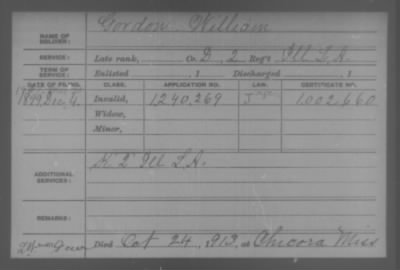 NAME OF SOLDIER: Gordon William
SERVICE: Late rank, Co. D, 2 Reg't Ill L. A.
TERM OF SERVICE: Enlisted , 1 Discharged , 1
DATE OF FILING. CLASS. APPLICATION NO. LAW. CERTIFICATE NO.
1899, Dec, 4. Invalid, 1240,269 1,002,660
Widow,
Minor,
ADDITIONAL SERVICES: K 2" Ill L. A.
REMARKS:
Died Oct 24, 1913, at Chicora Miss